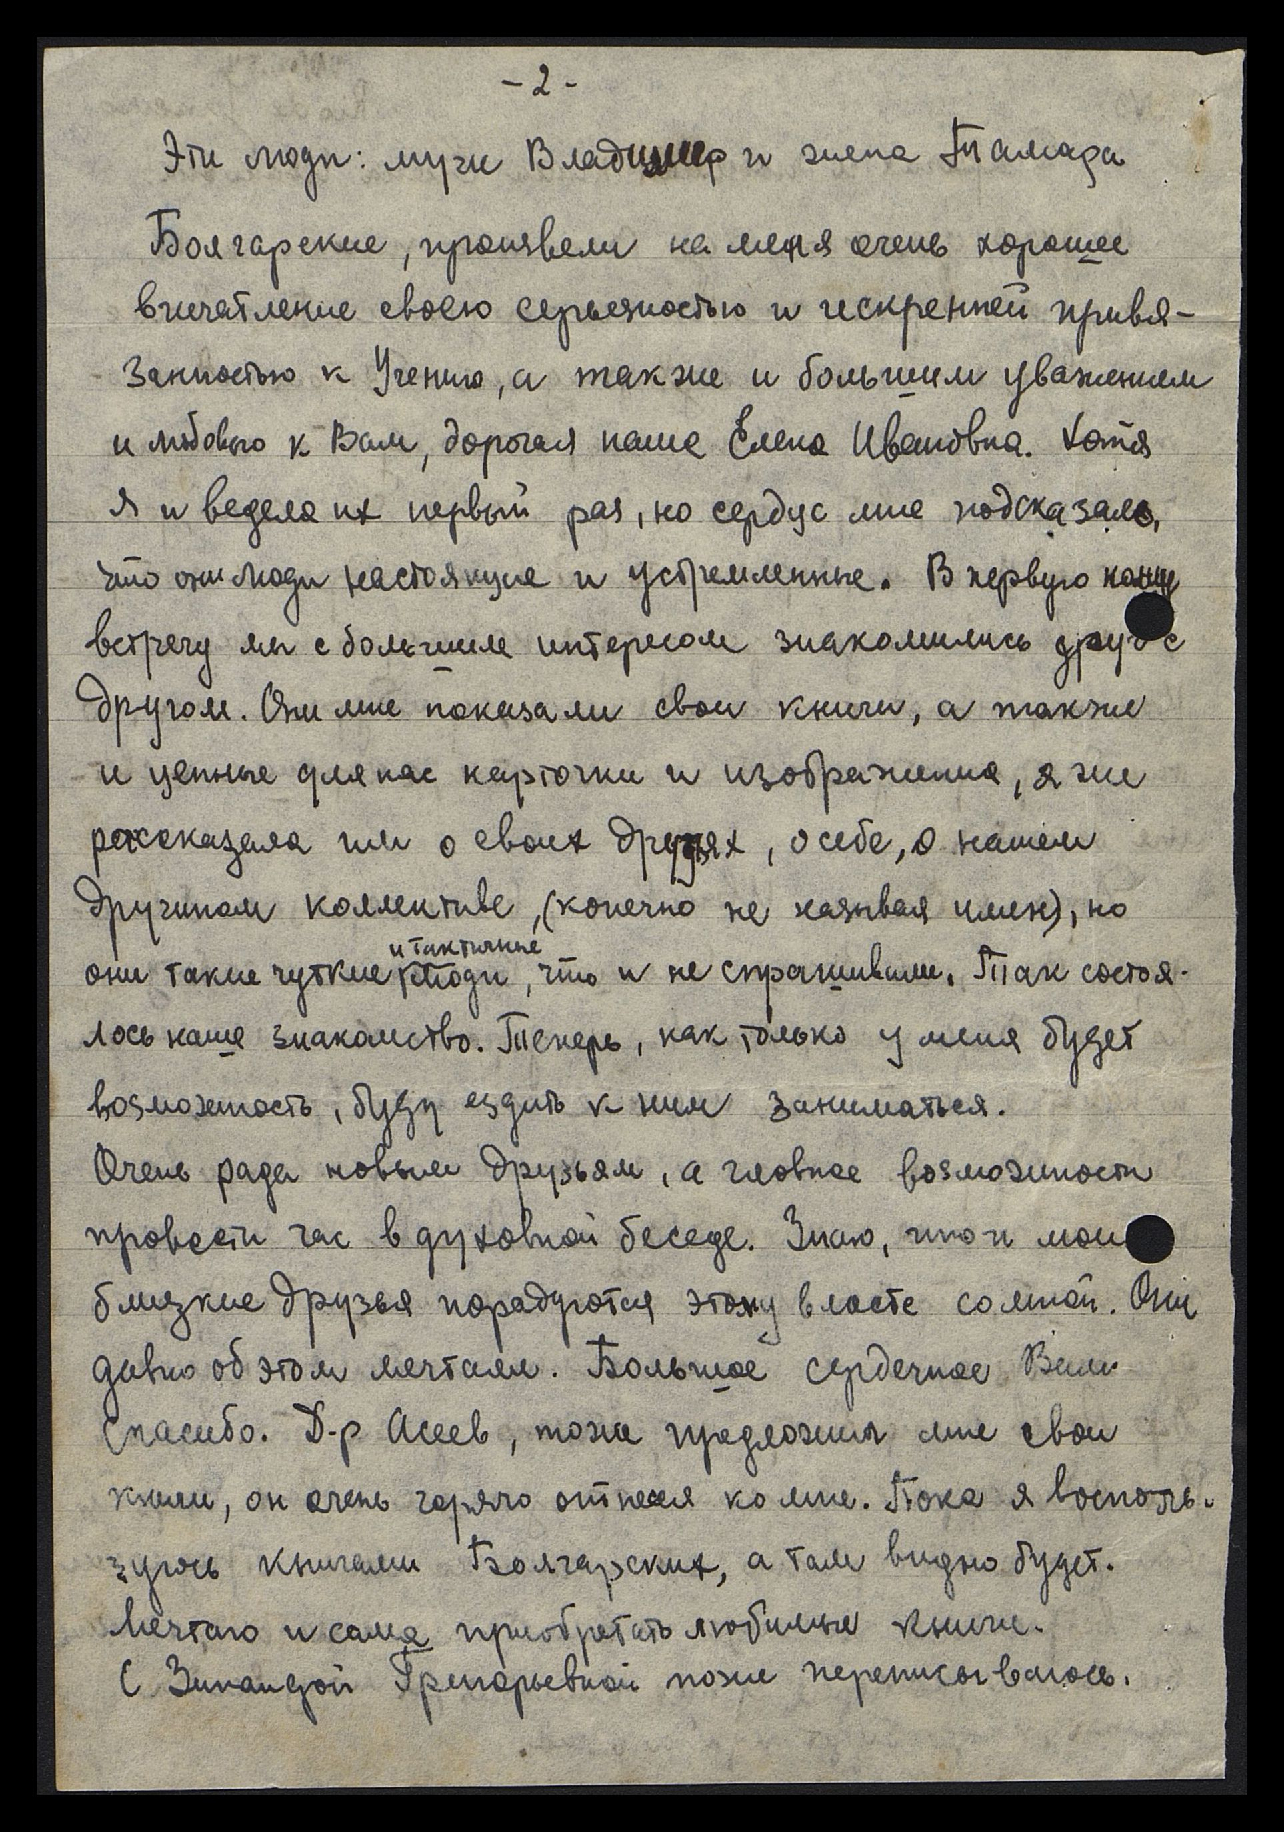 - 2 -
Эти люди: муж Владимир и жена Тамара
Болгарские, произвели на меня очень хорошее
впечатление своею серьезностью и искренней привя-
занностью к Учению, а также и большим уважением
и любовью к Вам, дорогая наша Елена Ивановна. Хотя
я и ведела их первый раз, но сердце мне подсказало,
что они люди настоящие и устремленные. В первую нашу
встречу мы с большим интересом знакомились друг с
другом. Они мне показали свои книги, а также
и ценные для нас карточки и изображения, я же
рассказала им о своих друзьях, о себе, о нашем
дружном коллективе, (конечно не называя имен), но
они такие чуткие и тактичные люди, что и не спрашивали. Так состоя-
лось наше знакомство. Теперь, как только у меня будет
возможность, буду ездить к ним заниматься.
Очень рада новым друзьям, а главное возможности
провести час в духовной беседе. Знаю, что и мои
близкие друзья порадуются этому вместе со мной. Они
давно об этом мечтали. Большое сердечное Вам
спасибо. Д-р Асеев, тоже предложил мне свои
книги, он очень горячо отнесся ко мне. Пока я восполь-
зуюсь книгами Болгарских, а там видно будет.
Мечтаю и сама приобретать любимые книги.
С Зинаидой Григорьевной тоже переписываюсь.